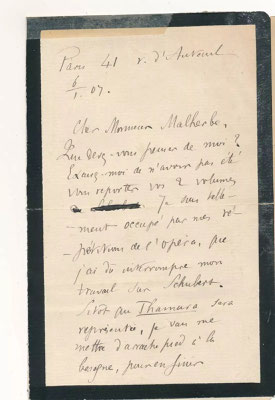 Paris 41 r. d'Auteuil
6/1. 07.
Cher Monsieur Malherbe,
Que devez-vous penser de moi ?
Excusez-moi de n'avoir pas été
vous reporter vos 2 volumes
Je suis telle-
-ment occupé par mes ré-
-pétitions de l'opéra, que
j'ai dû interrompre mon
travail sur Schubert.
Sitôt que Thamara sera
représentée, je vais me
mettre d'arrache pied à la
besogne, pour en finir